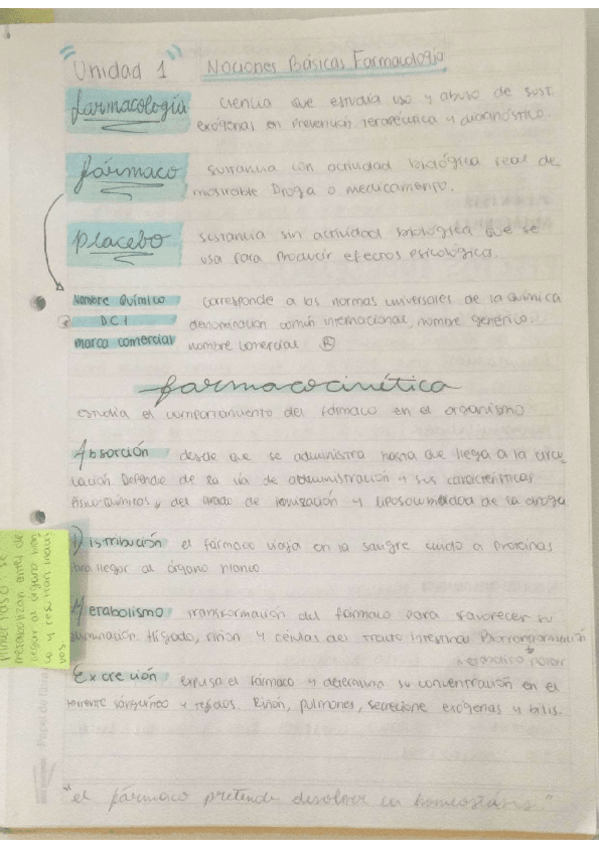 Unidad 1 Nociones Básicas Farmacología
farmacología ciencia que estudia uso y abuso de sust.
exógenas en prevención terapéutica y diagnóstico.
fármaco sustancia con actividad biológica real de
mostrable Droga o medicamento.
placebo sustancia sin actividad biológica que se
usa para producir efectos psicológica.
Nombre Químico corresponde a las normas universales de la química
DCI denominación común internacional, nombre genérico.
marca comercial nombre comercial ®
farmacocinética
estudia el comportamiento del fármaco en el organismo
Absorción desde que se administra hasta que llega a la circu
lación. Depende de la vía de administración y sus características
físico químicas y del grado de ionización y liposolubilidad de la droga
Distribución el fármaco viaja en la sangre unido a proteínas
para llegar al órgano blanco.
Metabolismo transformación del fármaco para favorecer su
eliminación. Hígado, riñón y células del tracto intestinal Biotransformación
metabolito polar
Excreción expulsa el fármaco y determina su concentración en el
torrente sanguíneo y tejidos. Riñón, pulmones, secrecione exógenas y bilis.
"el fármaco pretende devolver la homeostasis."
Primer paso: se
metabolizan antes de
llegar al órgano blan
co y resultan inacti
vos
Papel de